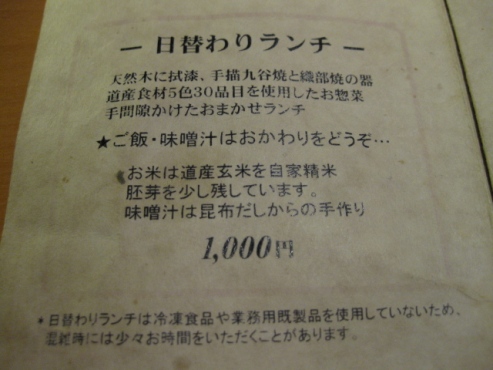 ― 日替わりランチ ―
天然木に拭漆、手描九谷焼と織部焼の器
道産食材5色30品目を使用したお惣菜
手間隙かけたおまかせランチ
★ご飯・味噌汁はおかわりをどうぞ…
お米は道産玄米を自家精米
胚芽を少し残しています。
味噌汁は昆布だしからの手作り
1,000円
*日替わりランチは冷凍食品や業務用既製品を使用していないため、
混雑時には少々お時間をいただくことがあります。